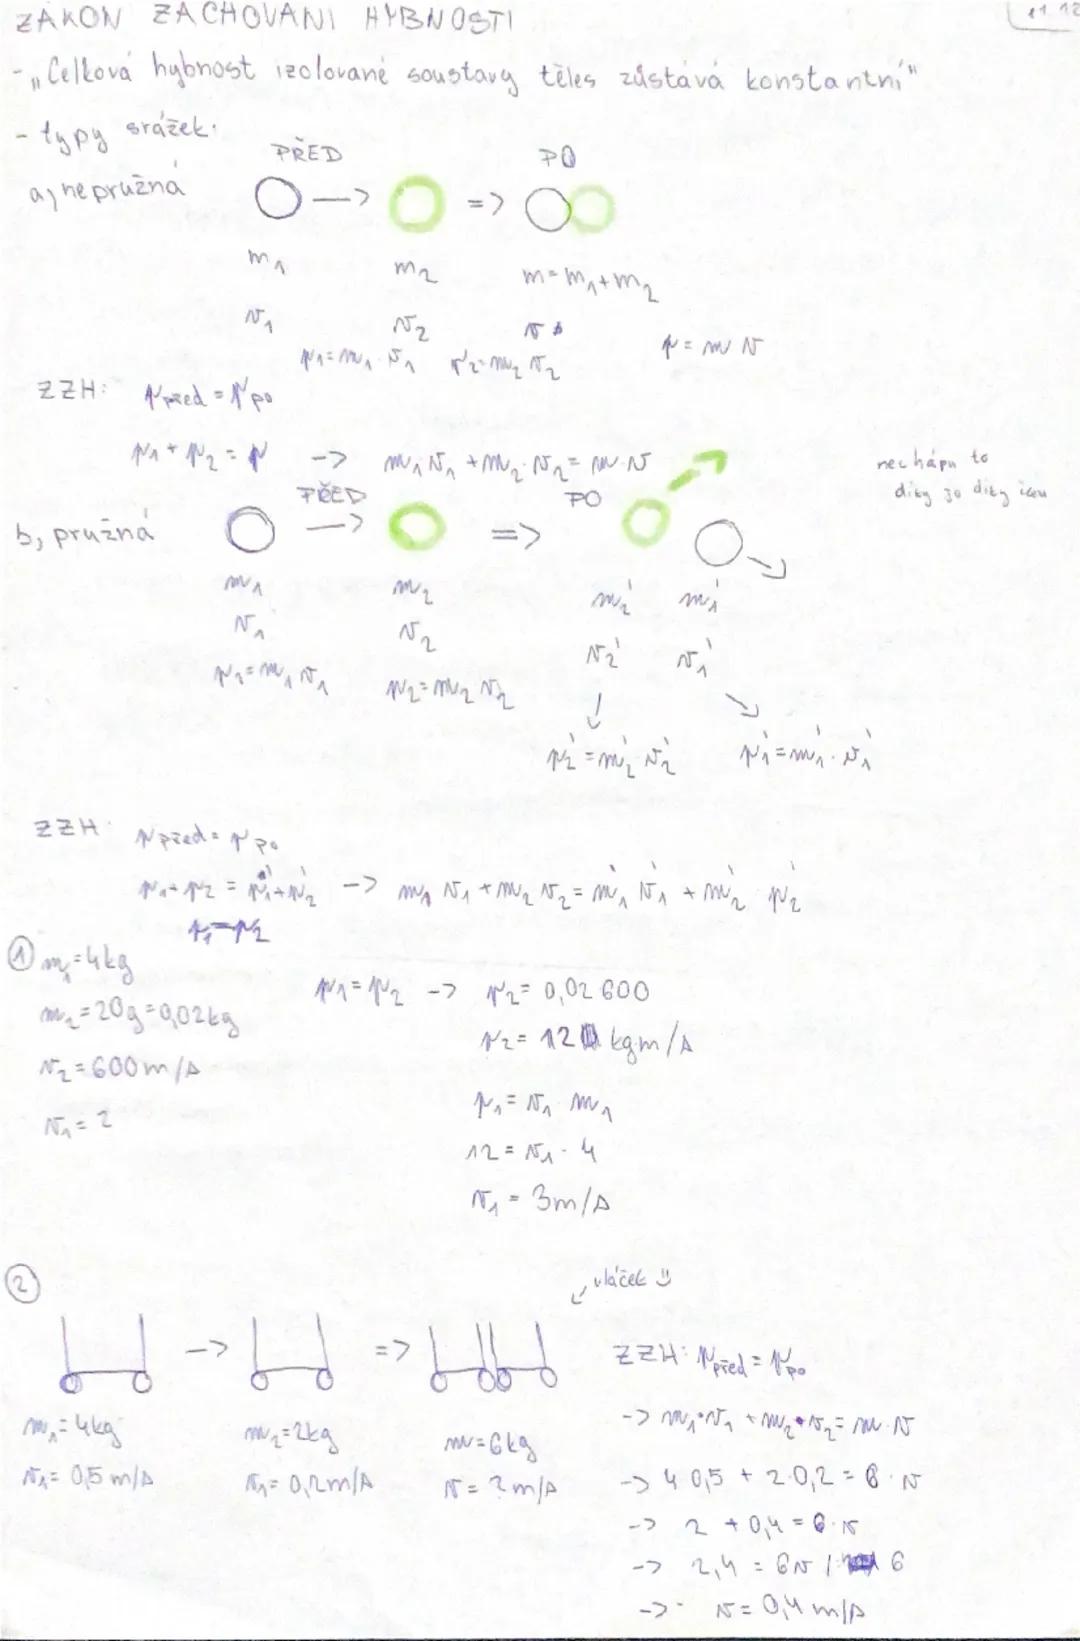 ZÁKON ZACHOVÁNÍ HYBNOSTI
11.12
- „Celková hybnost izolované soustavy těles zůstává konstantní"
- typy srážek:
PŘED PO
a, nepružná -> =>
m₁ m₂ m=m₁+m₂
v₁ v₂ v
p₁=m₁·v₁ p₂=m₂ v₂ p=m v
ZZH: p před = p po
p₁+p₂=p -> m₁ v₁ + m₂·v₂ = m·v
nechápu to
díky jo díky
PŘED PO
b, pružná -> =>
m₁ m₂ m₂' m₁'
v₁ v₂ v₂' v₁'
p₁=m₁ v₁ p₂=m₂ v₂
p₂'=m₂' v₂' p₁'=m₁'·v₁'
ZZH: p před = p po
p₁+p₂ = p₁'+p₂' -> m₁ v₁ + m₂ v₂ = m₁' v₁' + m₂' p₂'
p₁=p₂
① m₁=4kg
m₂=20g=0,02kg
v₂=600m/s
v₁=?
p₁=p₂ -> p₂=0,02 600
p₂=12 kgm/s
p₁=v₁ m₁
12=v₁·4
v₁=3m/s
②
vláček
-> =>
m₁=4kg m₂=2kg m=6kg
v₁=0,5 m/s v₁=0,2m/s v=? m/s
ZZH: p před = p po
-> m₁·v₁ + m₂·v₂ = m·v
-> 4 0,5 + 2·0,2 = 6·v
-> 2 + 0,4 = 6·v
-> 2,4 = 6v /: 6
-> v=0,4 m/s